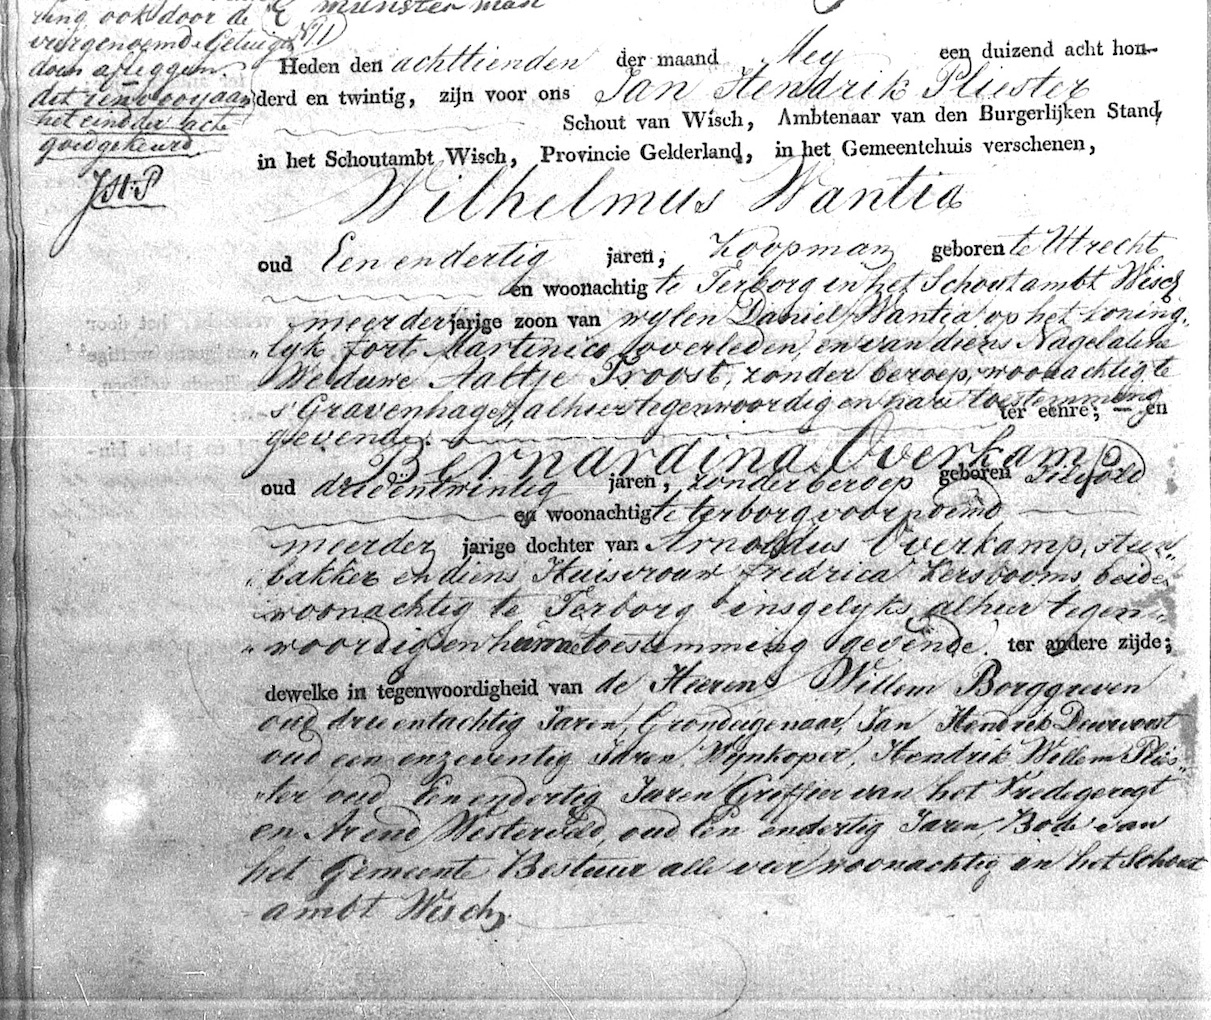 munsterman
ring ook door de
viergenoemde Getuigen
doen afleggen.
dit renvooij aan
het eind der acte
goedgekeurd
JHP
Heden den achttienden der maand Mey een duizend acht hon-
derd en twintig, zijn voor ons Jan Hendrik Pliester
Schout van Wisch, Ambtenaar van den Burgerlijken Stand,
in het Schoutambt Wisch, Provincie Gelderland, in het Gemeentehuis verschenen,
Wilhelmus Wantia
oud Een en dertig jaren, Koopman geboren te Utrecht
en woonachtig te Terborg in het Schoutambt Wisch
meerder jarige zoon van wylen Daniel Wantia op het koning„
„lyk fort Martinico overleden, en van diens Nagelatene
Weduwe Aaltje Troost, zonder beroep, woonachtig te
s' Gravenhage, alhier tegenwoordig en hare toestemming
gevende. ter eenre; en
Bernardina Overkamp
oud drie en twintig jaren, zonder beroep geboren
en woonachtig te terborg voornoemd
meerder jarige dochter van Arnoldus Overkamp, Steen„
„bakker en diens Huisvrouw Fredrica Kersbooms, beide
woonachtig te Terborg insgelyks alhier tegen„
„woordig en hunne toestemming gevende. ter andere zijde;
dewelke in tegenwoordigheid van de Heeren Willem Borggreven
oud drie en tachtig Jaren, Grondeigenaar, Jan Hendrik Deurvorst
oud een en zeventig Jaren, Wynkoper, Hendrik Willem Plies„
„ter oud Een en dertig Jaren Griffier van het Vredegeregt
en Arend Westerveld, oud Een en dertig Jaren, Bode van
het Gemeente Bestuur alle vier woonachtig in het Schout
ambt Wisch.